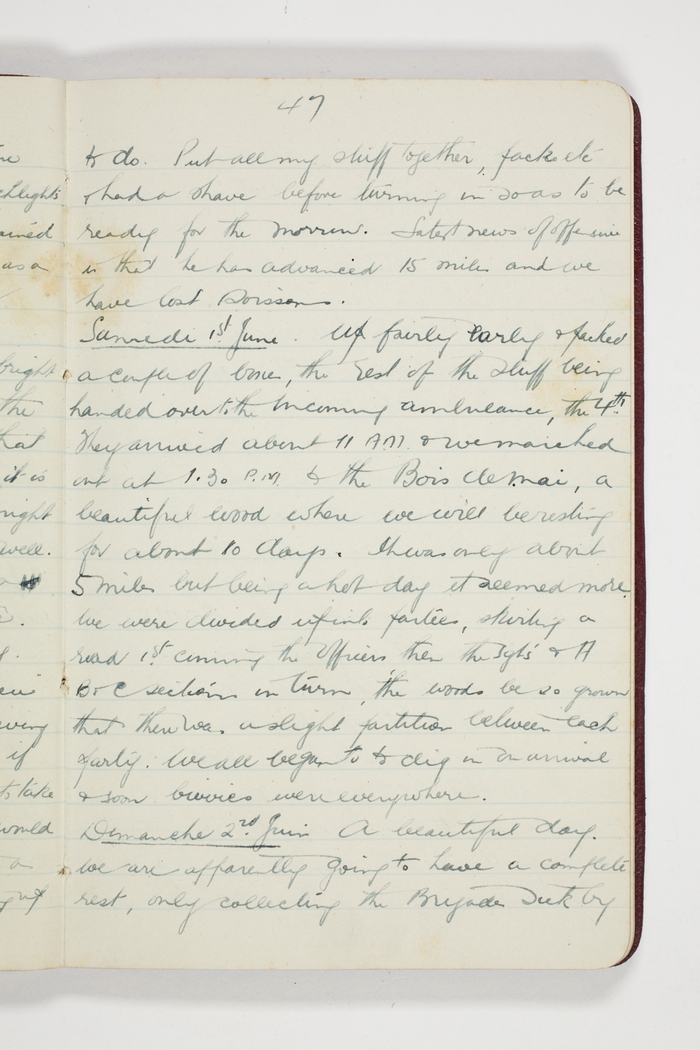 47
to do. Put all my stuff together, packs etc
& had a shave before turning in so as to be
ready for the morrow. Latest news of offensive
is that he has advanced 15 miles and we
have lost Soissons.
Samedi 1st June. Up fairly early & packed
a couple of boxes, the rest of the stuff being
handed over to the incoming ambulance, the 4th.
They arrived about 11 A.M. & we marched
out at 1.30 P.M. to the Bois de Mai, a
beautiful wood where we will be resting
for about 10 days. It was only about
5 miles but being a hot day it seemed more.
We were divided up into parties, skirting a
road 1st coming the Officers, then the Sgts & A
B & C sections in turn, the woods be so grown
that there was a slight partition between each
party. We all began to to dig in on arrival
& soon bivvies were everywhere.
Dimanche 2nd Juin A beautiful day.
We are apparently going to have a complete
rest, only collecting the Brigades Sick by
re
chlights
ained
as a
bright
the
that
it is
night
well.
eving
if
to take
would
a
up